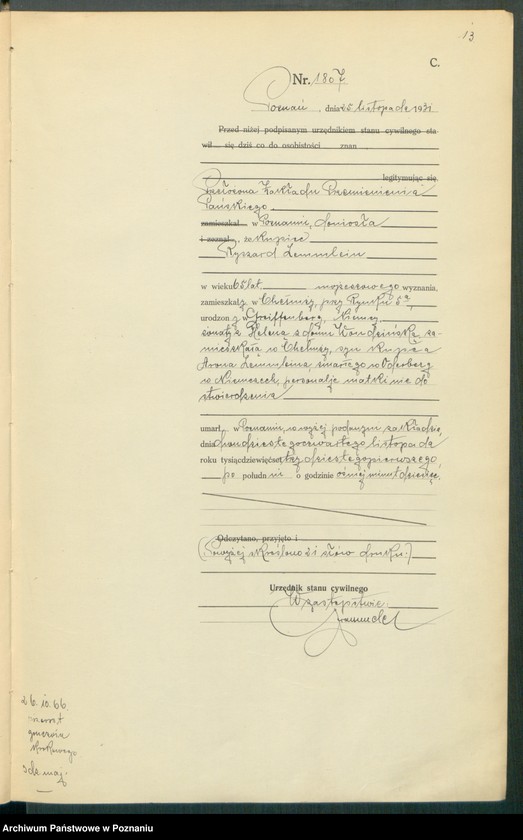 13
C.
Nr. 1807
Poznań, dnia 25 listopada 1931
Przed niżej podpisanym urzędnikiem stanu cywilnego sta-
wił się dziś co do osobistości znan
legitymując się
Przełożona Zakładu Przemienienia
Pańskiego
zamieszkał w Poznaniu, doniosła
i zeznał, że kupiec
Ryszard Lemmlein
w wieku 65 lat, mojżeszowego wyznania,
zamieszkały w Chełmży, przy Rynku 5a,
urodzony w Greiffenberg, Niemcy,
żonaty z Heleną z domu za-
mieszkałą w Chełmży, syn kupca
Arona Lemmleina, zmarłego w Oderberg
w Niemczech, personalje matki nie do
stwierdzenia
umarł w Poznaniu, w wyżej podanym zakładzie,
dnia dwudziestegoczwartego listopada
roku tysiącdziewięćset trzydziestegopierwszego,
po południu o godzinie ósmej minut dziesięć.
Odczytano, przyjęto i
(Powyżej skreślono 21 słów druku.)
Urzędnik stanu cywilnego
W zastępstwie:
26. 10. 66
Archiwum Państwowe w Poznaniu